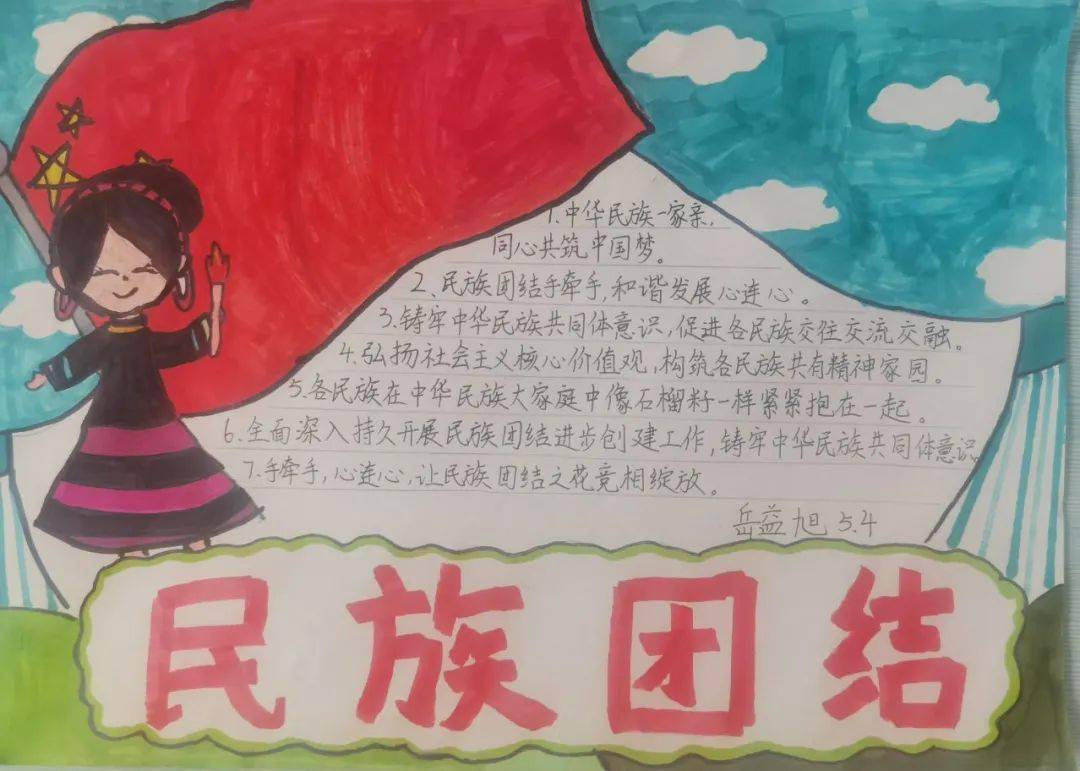 1.中华民族一家亲,
同心共筑中国梦。
2、民族团结手牵手,和谐发展心连心。
3.铸牢中华民族共同体意识,促进各民族交往交流交融。
4.弘扬社会主义核心价值观,构筑各民族共有精神家园。
5.各民族在中华民族大家庭中像石榴籽一样紧紧抱在一起。
6.全面深入持久开展民族团结进步创建工作,铸牢中华民族共同体意识
7.手牵手,心连心,让民族团结之花竞相绽放。
岳益旭 5.4
民族团结